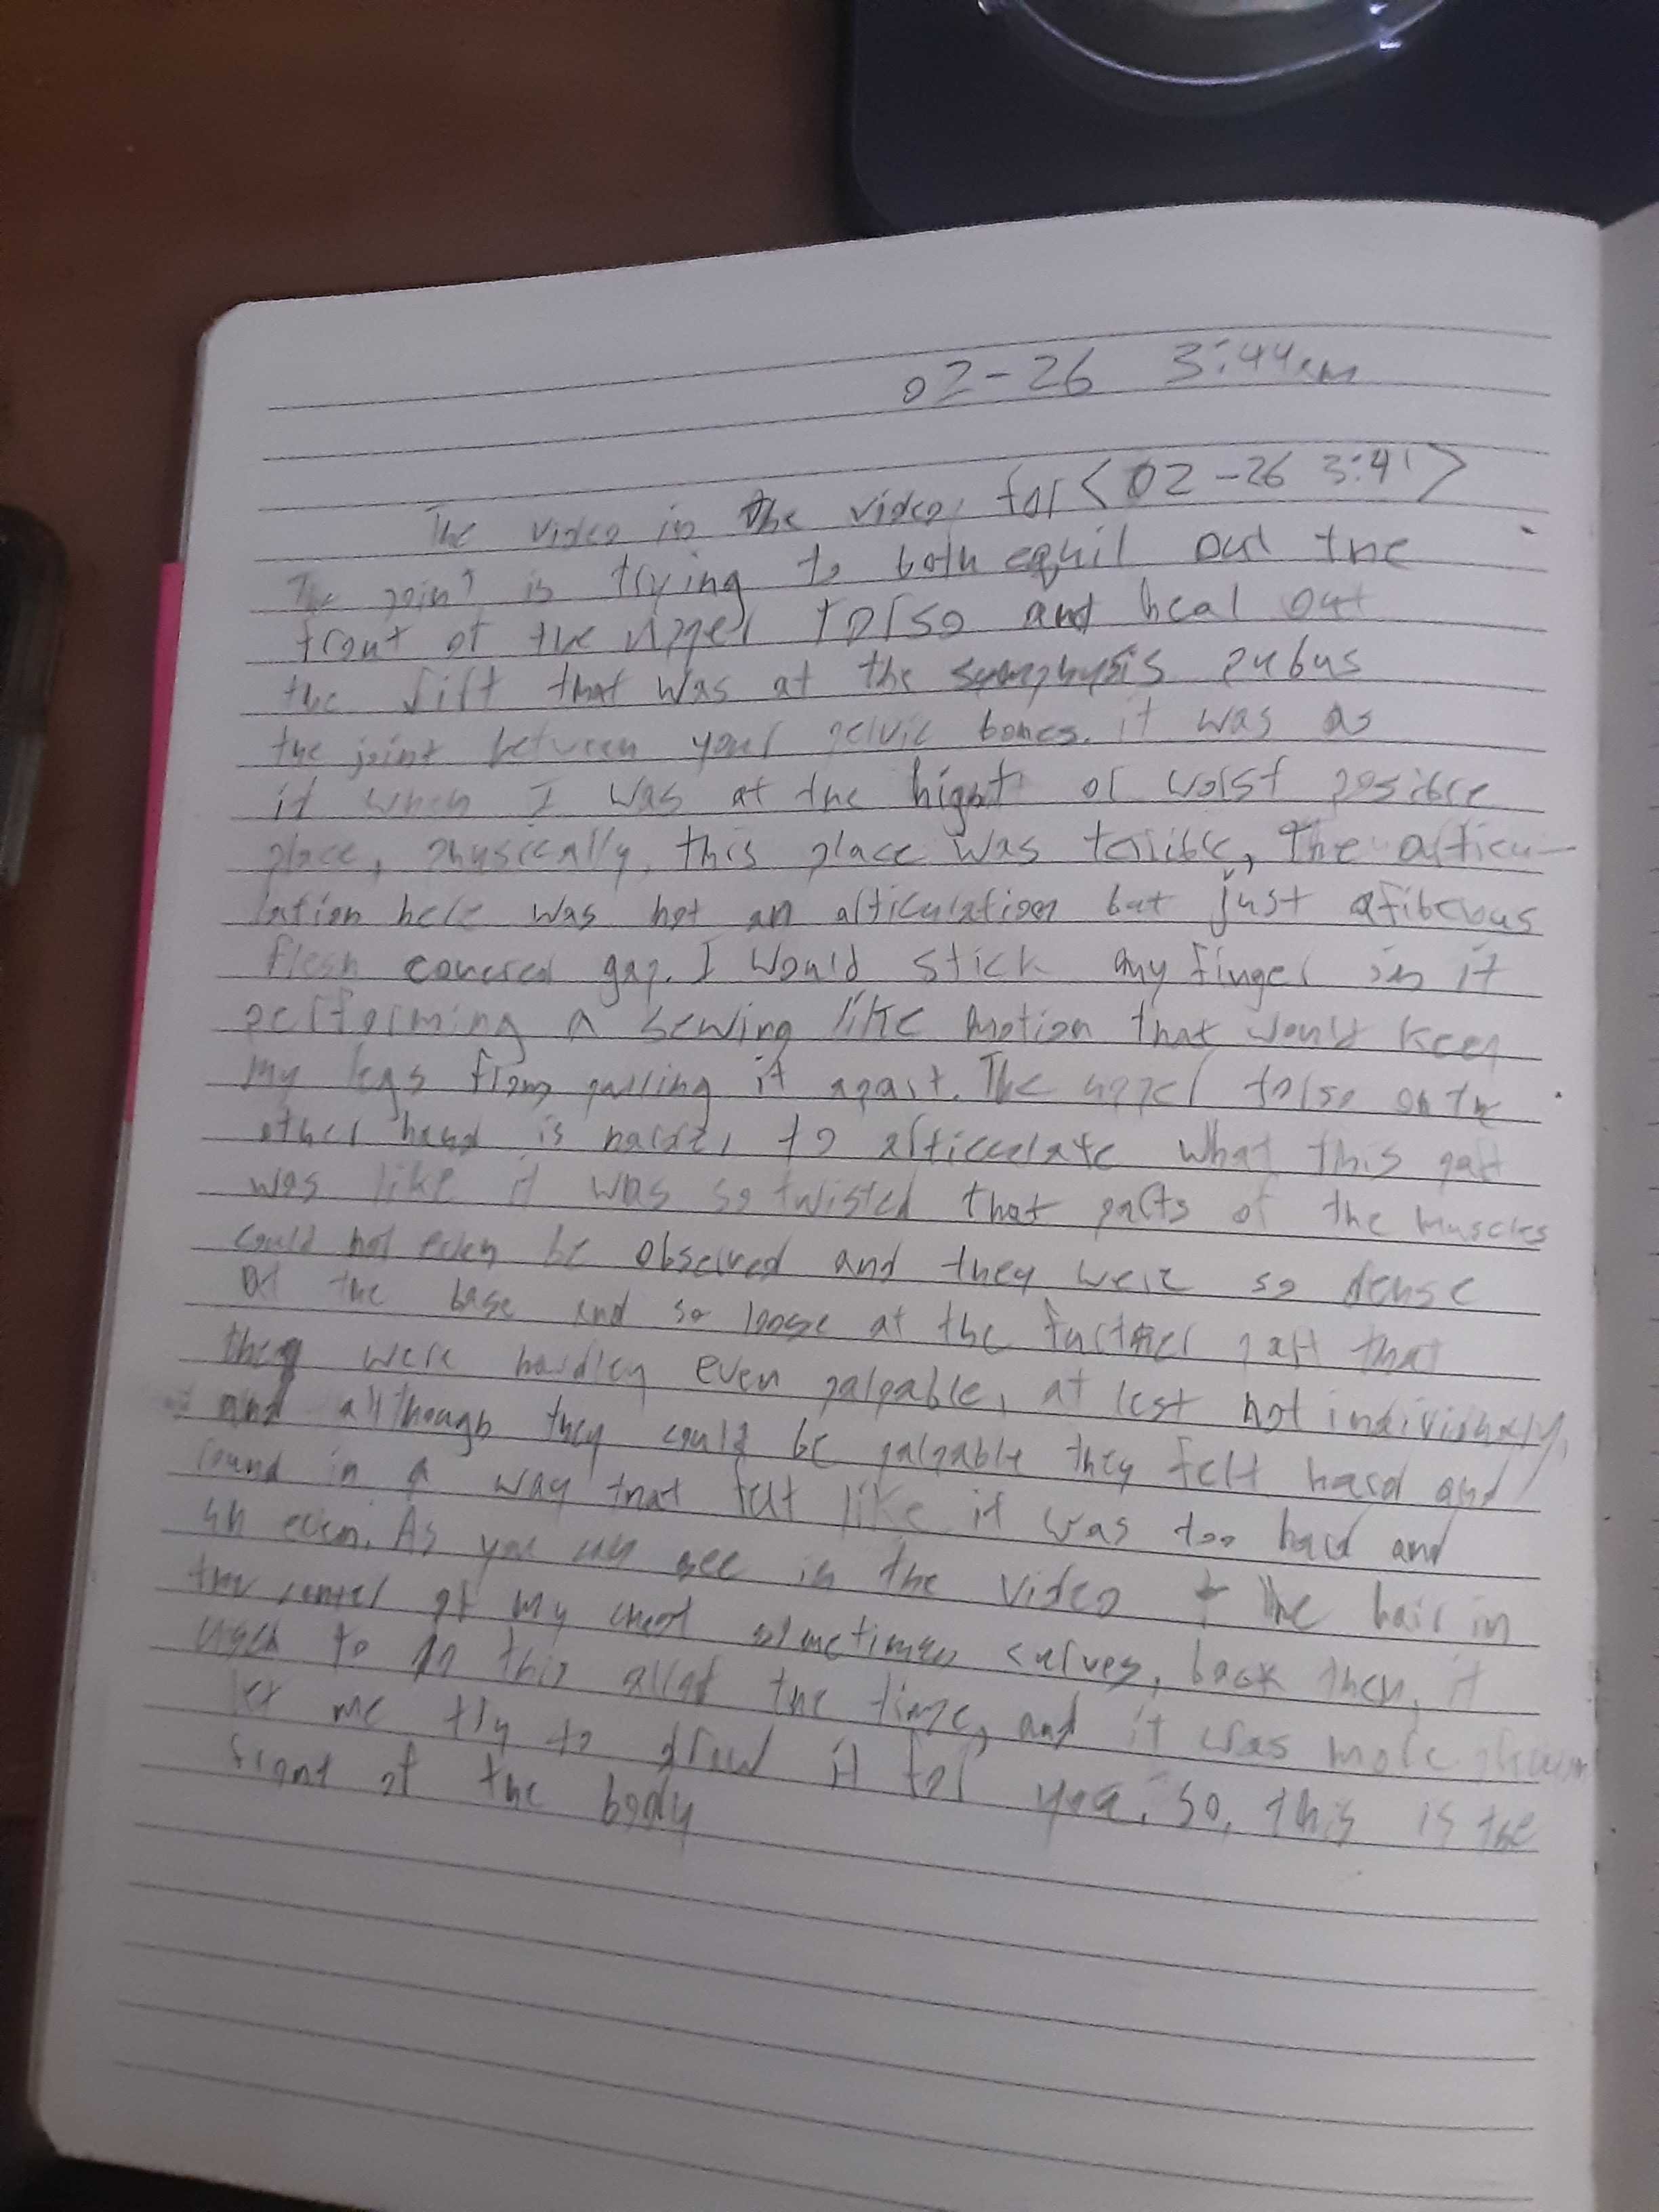 02-26 3:44am
The video in the video, for <02-26 3:41>
The point is trying to both equil out the
front of the upper torso and heal out
the rift that was at the symphysis pubus
the joint between your pelvic bones. it was as
if when I was at the hight or worst posible
place, physically, this place was terrible, The articu-
lation here was not an articulation but just a fiberous
flesh covered gap. I would stick my finger in it
performing a sewing like motion that would keep
my legs from pulling it apart. The upper torso on the
other hand is harder to articculate what this part
was like it was so twisted that parts of the muscles
could not even be observed and they were so dense
at the base and so loose at the further part that
they were hardley even palpable, at lest not individually,
and allthough they could be palpable they felt hard and
round in a way that felt like it was too hard and
un even. As you can see in the video the hair in
the center of my chest sometimes curves, back then, it
used to do this allof the time, and it was more
let me try to draw it for you. So, this is the
front of the body